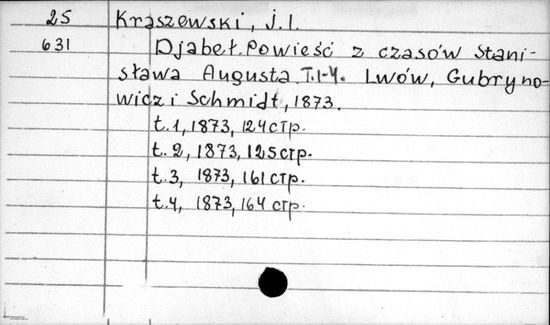 25 Kraszewski, J. I.
631 Djabeł. Powieść z czasów Stani-
sława Augusta T. 1-4. Lwów, Gubryno-
wicz i Schmidt, 1873.
t. 1, 1873, 124 стр.
t. 2, 1873, 125 стр.
t. 3, 1873, 161 стр.
t. 4, 1873, 164 стр.